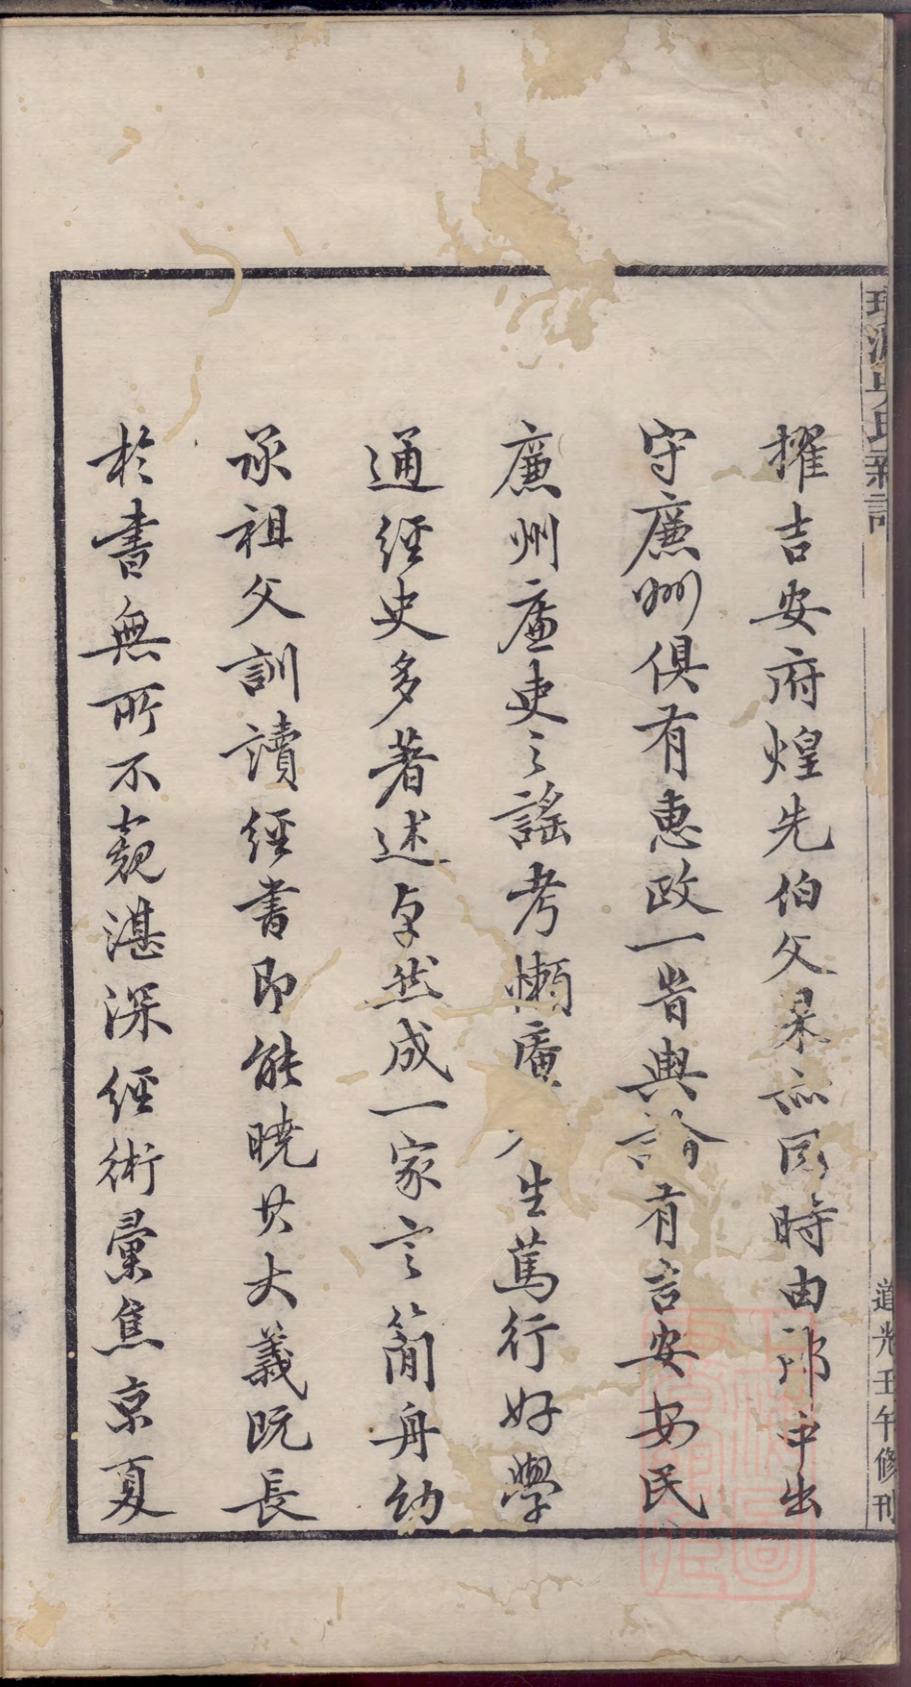 擢吉安府煌先伯父杲亦同時由郎中出
守廉州俱有惠政一昔輿論有吉安安民
廉州廉吏之謠考懶廣生篤行好學
通經史多著述卓然成一家言簡舟幼
承祖父訓讀經書即能曉其大義既長
於書無所不窺湛深經術彙焦京夏
道光壬午修刊